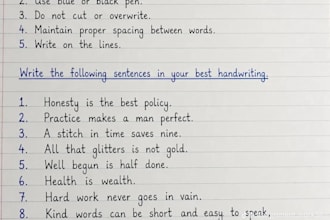 2. Use blue or black pen.
3. Do not cut or overwrite.
4. Maintain proper spacing between words.
5. Write on the lines.
Write the following sentences in your best handwriting.
1. Honesty is the best policy.
2. Practice makes a man perfect.
3. A stitch in time saves nine.
4. All that glitters is not gold.
5. Well begun is half done.
6. Health is wealth.
7. Hard work never goes in vain.
8. Kind words can be short and easy to speak,